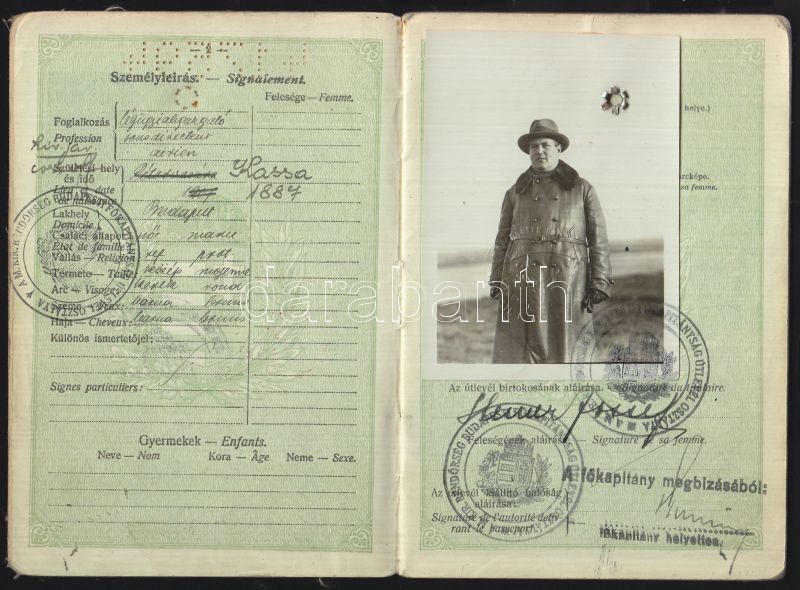 — 2 —
Személyleírás. — Signalement.
Felesége — Femme.
Foglalkozás
Profession
Születési hely Kassa
és idő 1887
Lieu et date
de naissance
Lakhely Budapest
Domicile
Családi állapot nős marié
État de famille
Vallás — Religion ref. prot.
Termete — Taille közép moyenne
Arc — Visage: kerek rond
Szeme — Yeux: barna bruns
Haja — Cheveux: barna bruns
Különös ismertetőjel:
Signes particuliers:
Gyermekek — Enfants.
Neve — Nom Kora — Âge Neme — Sexe.
helye.)
arcképe.
sa femme.
Az útlevél birtokosának aláírása. — Signature du titulaire.
József
Feleségének aláírása. Signature de sa femme.
A főkapitány megbizásából:
Az útlevél kiállító hatóság
aláírása:
Signature de l'autorité déliv-
rant le passeport
főkapitány helyettes.
darabanth